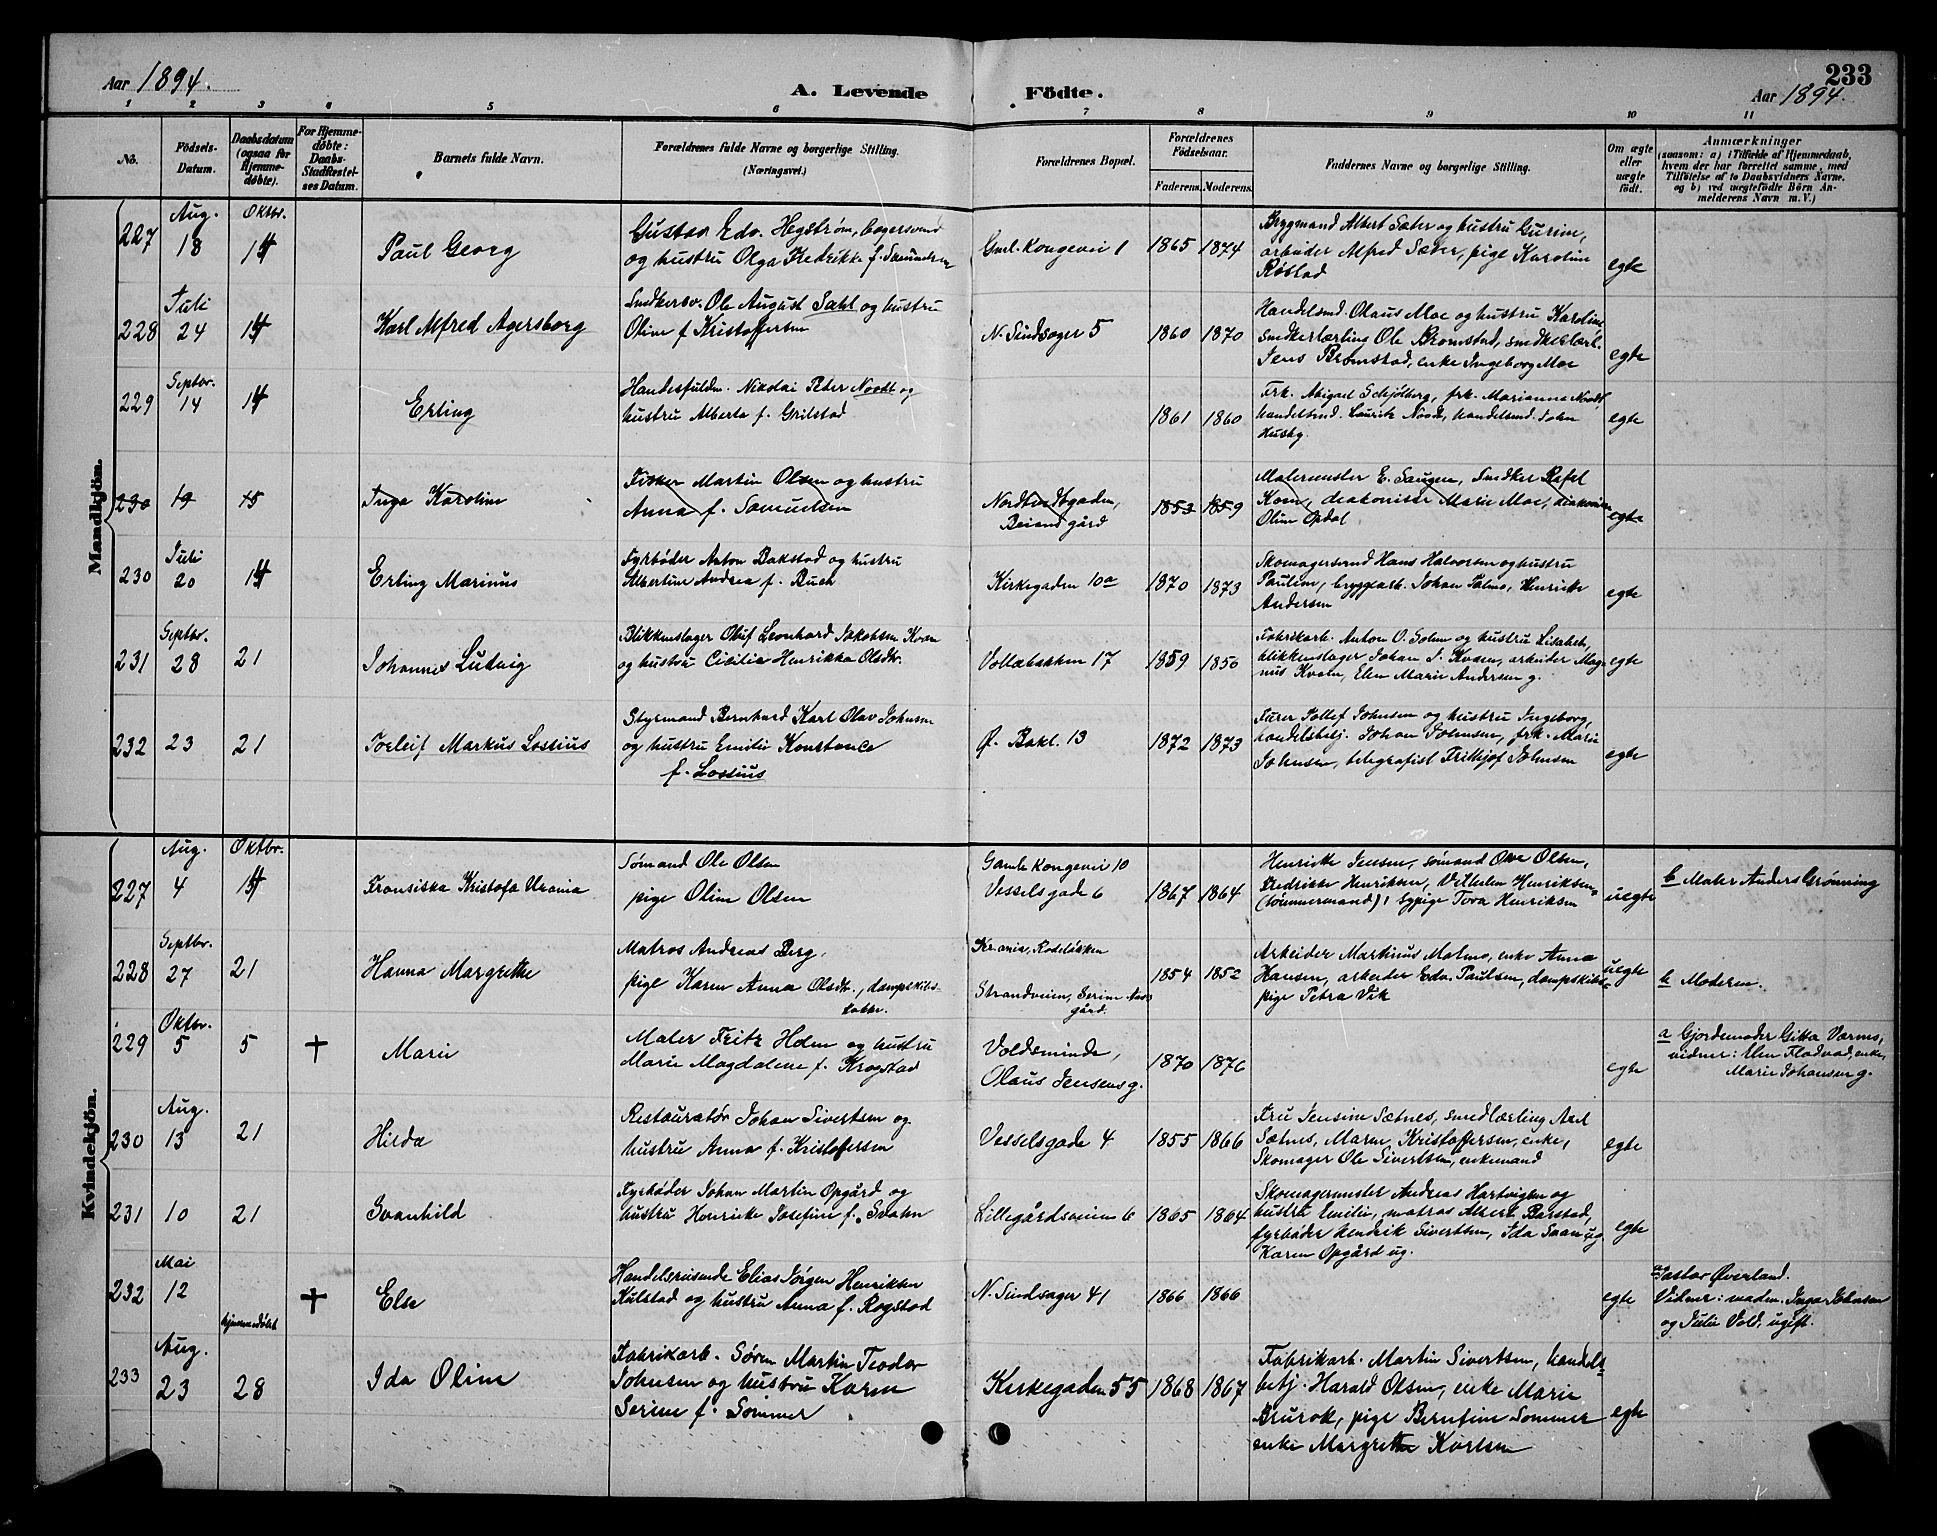 233
Aar 1894.
A. Levende Födte.
Aar 1894.
1 2 3 4 5 6 7 8 9 10 11
No.
Födsels-
Datum.
Daabsdatum
(ogsaa for
Hjemme-
døbte).
For Hjemme-
døbte:
Daabs-
Stadfæstel-
ses Datum.
Barnets fulde Navn.
Forældrenes fulde Navne og borgerlige Stilling.
(Næringsvei.)
Forældrenes Bopæl.
Forældrenes
Födselsaar.
Faderens. Moderens.
Faddernes Navne og borgerlige Stilling.
Om ægte
eller
uægte
født.
Anmærkninger
(saasom: a) i Tilfælde af Hjemmedaab,
hvem der har forrettet samme, med
Tilföielse af to Daabsvidners Navne,
og b) ved uægtefødte Börn An-
melderens Navn m. V.)
Mandkjön.
227
Aug.
18
Oktbr.
14
Paul Georg
Gustav Edv. Hegstrøm, bagersvend
og hustru Olga Fredrikke f.
Gml. Kongevei 1
1865 1874
Brygmand Albert Sæter og hustru Gurine,
arbeider Alfred Sæter, pige Karoline
Røstad
egte
228
Juli
24
14
Karl Alfred Agersborg
Snedkersv. Ole August Dahl og hustru
Oline f. Kristoffersen
N. Sindsager 5
1860 1870
Handelsmd. Olaus Moe og hustru Karoline,
snedkerlærling Ole Bromstad, snedkerlærl.
Jens Bromstad, enke Ingeborg Moe
egte
229
Septbr.
14
14
Erling
Handelsfuldm. Nikolai Peter Noodt og
hustru Alberta f. Grilstad
1861 1860
Frk. Abigael Schjølberg, frk. Marianna Noodt,
handelsmd. Lauritz Noodt, handelsmd. John
Husby.
egte
230
19
15
Inga Karoline
Fisker Martin Olsen og hustru
Anna f. Samuelsen
Beiand gård
1853 1859
Malermester E. Saugen, Snedker Rafal
Kom, diakonisse Marie Moe, diakonisse
Oline Opdal
egte
230
Juli
20
14
Erling Marinus
Fyrbøder Anton Bakstad og hustru
Albertine Andrea f. Buch
Kirkegaden 10a
1870 1873
Skomagersvend Hans Halvorsen og hustru
Pauline, bryggearb. Johan Malmo, Henrikke
Andersen
egte
231
Septbr.
28
21
Johannes Ludvig
Blikkenslager Oluf Leonhard Jakobsen Kvam
og hustru Cicilia Henrikka Olsdtr.
Vollabakken 17
1859 1850
Fabrikarb. Anton O. Solem og hustru Lisabeth,
blikkenslager Johan J. Kvam, arbeider Mag-
nus Kvam, Elen Marie Andersen g.
egte
232
23
21
Torleif Markus Lossius
Styrmand Bernhard Karl Olav Johnsen
og hustru Emilie Konstance
f. Lossius
Ø. Bakl. 13
1872 1873
Furer Tollef Johnsen og hustru Ingeborg,
handelsbetj. Johan Johnsen, frk. Marie
Johnsen, telegrafist Frithjof Johnsen
egte
Kvindekjön.
227
Aug.
4
Oktbr.
14
Fransiska Kristofa Urania
Sømand Ole Olsen
pige Oline Olsen
Gamle Kongevei 10
Vesselsgade 6
1867 1864
Henrikke Jensen, sømand Ove Olsen,
Fredrikke Henriksen, Vilhelm Henriksen
(tømmermand), sypige Tora Henriksen
uegte
b Maler Anders Grønning
228
Septbr.
27
21
Hanna Margrethe
Matros Andreas Berg,
pige Karen Anna Olsdtr., dampskibs-
kokke.
Krania, Rodeløkken
Strandveien, Serine
gård.
1854 1852
Arbeider Martinus Malmo, enke Anna
Hansen, arbeider Edv. Paulsen, dampskibs-
pige Petra Vik
uegte
b Moderen.
229
Oktbr.
5
5
+
Marie
Maler Fritz Holm og hustru
Marie Magdalene f. Krogstad
Voldsminde,
Olaus Jensens g.
1870 1876
egte
a Gjordemoder Gitta Varmo,
vidner: Elen Fladvad, enke,
Marie Johansen g.
230
Aug.
13
21
Hilda
Restauratør Johan Sivertsen og
hustru Anna f. Kristoffersen
Vesselsgade 4
1855 1866
Fru Jensine Sætnes, smedlærling Axel
Sætnes, Maren Kristoffersen, enke,
Skomager Ole Sivertsen, enkemand
egte
231
10
21
Svanhild
Fyrbøder Johan Martin Opgård og
hustru Henrikke Josefine f. Svahn
Lillegårdsveien 6
1865 1864
Skomagermester Andreas Hartvigsen og
hustru Emilie, matros Albert Barstad,
fyrbøder Hendrik Sivertsen, Ida Svan ug.
Karen Opgård ug.
egte
232
Mai
12
hjemmedøbt
+
Else
Handelsreisende Elias Jørgen Henriksen
Kulstad og hustru Anna f. Rogstad
N. Sindsager 41
1866 1866
egte
a Pastor Øverland.
Vidner: madam Inga Johnsen
og Julie Vold, ugift.
233
Aug.
23
28
Ida Oline
Fabrikarb. Søren Martin Teodor
Johnsen og hustru Karen
Serine f. Sommer
Kirkegaden 55
1868 1867
Fabrikarb. Martin Sivertsen, handels-
betj. Harald Olsen, enke Marie
Brurok, pige Berntine Sommer
enke Margrethe Karlsen
egte